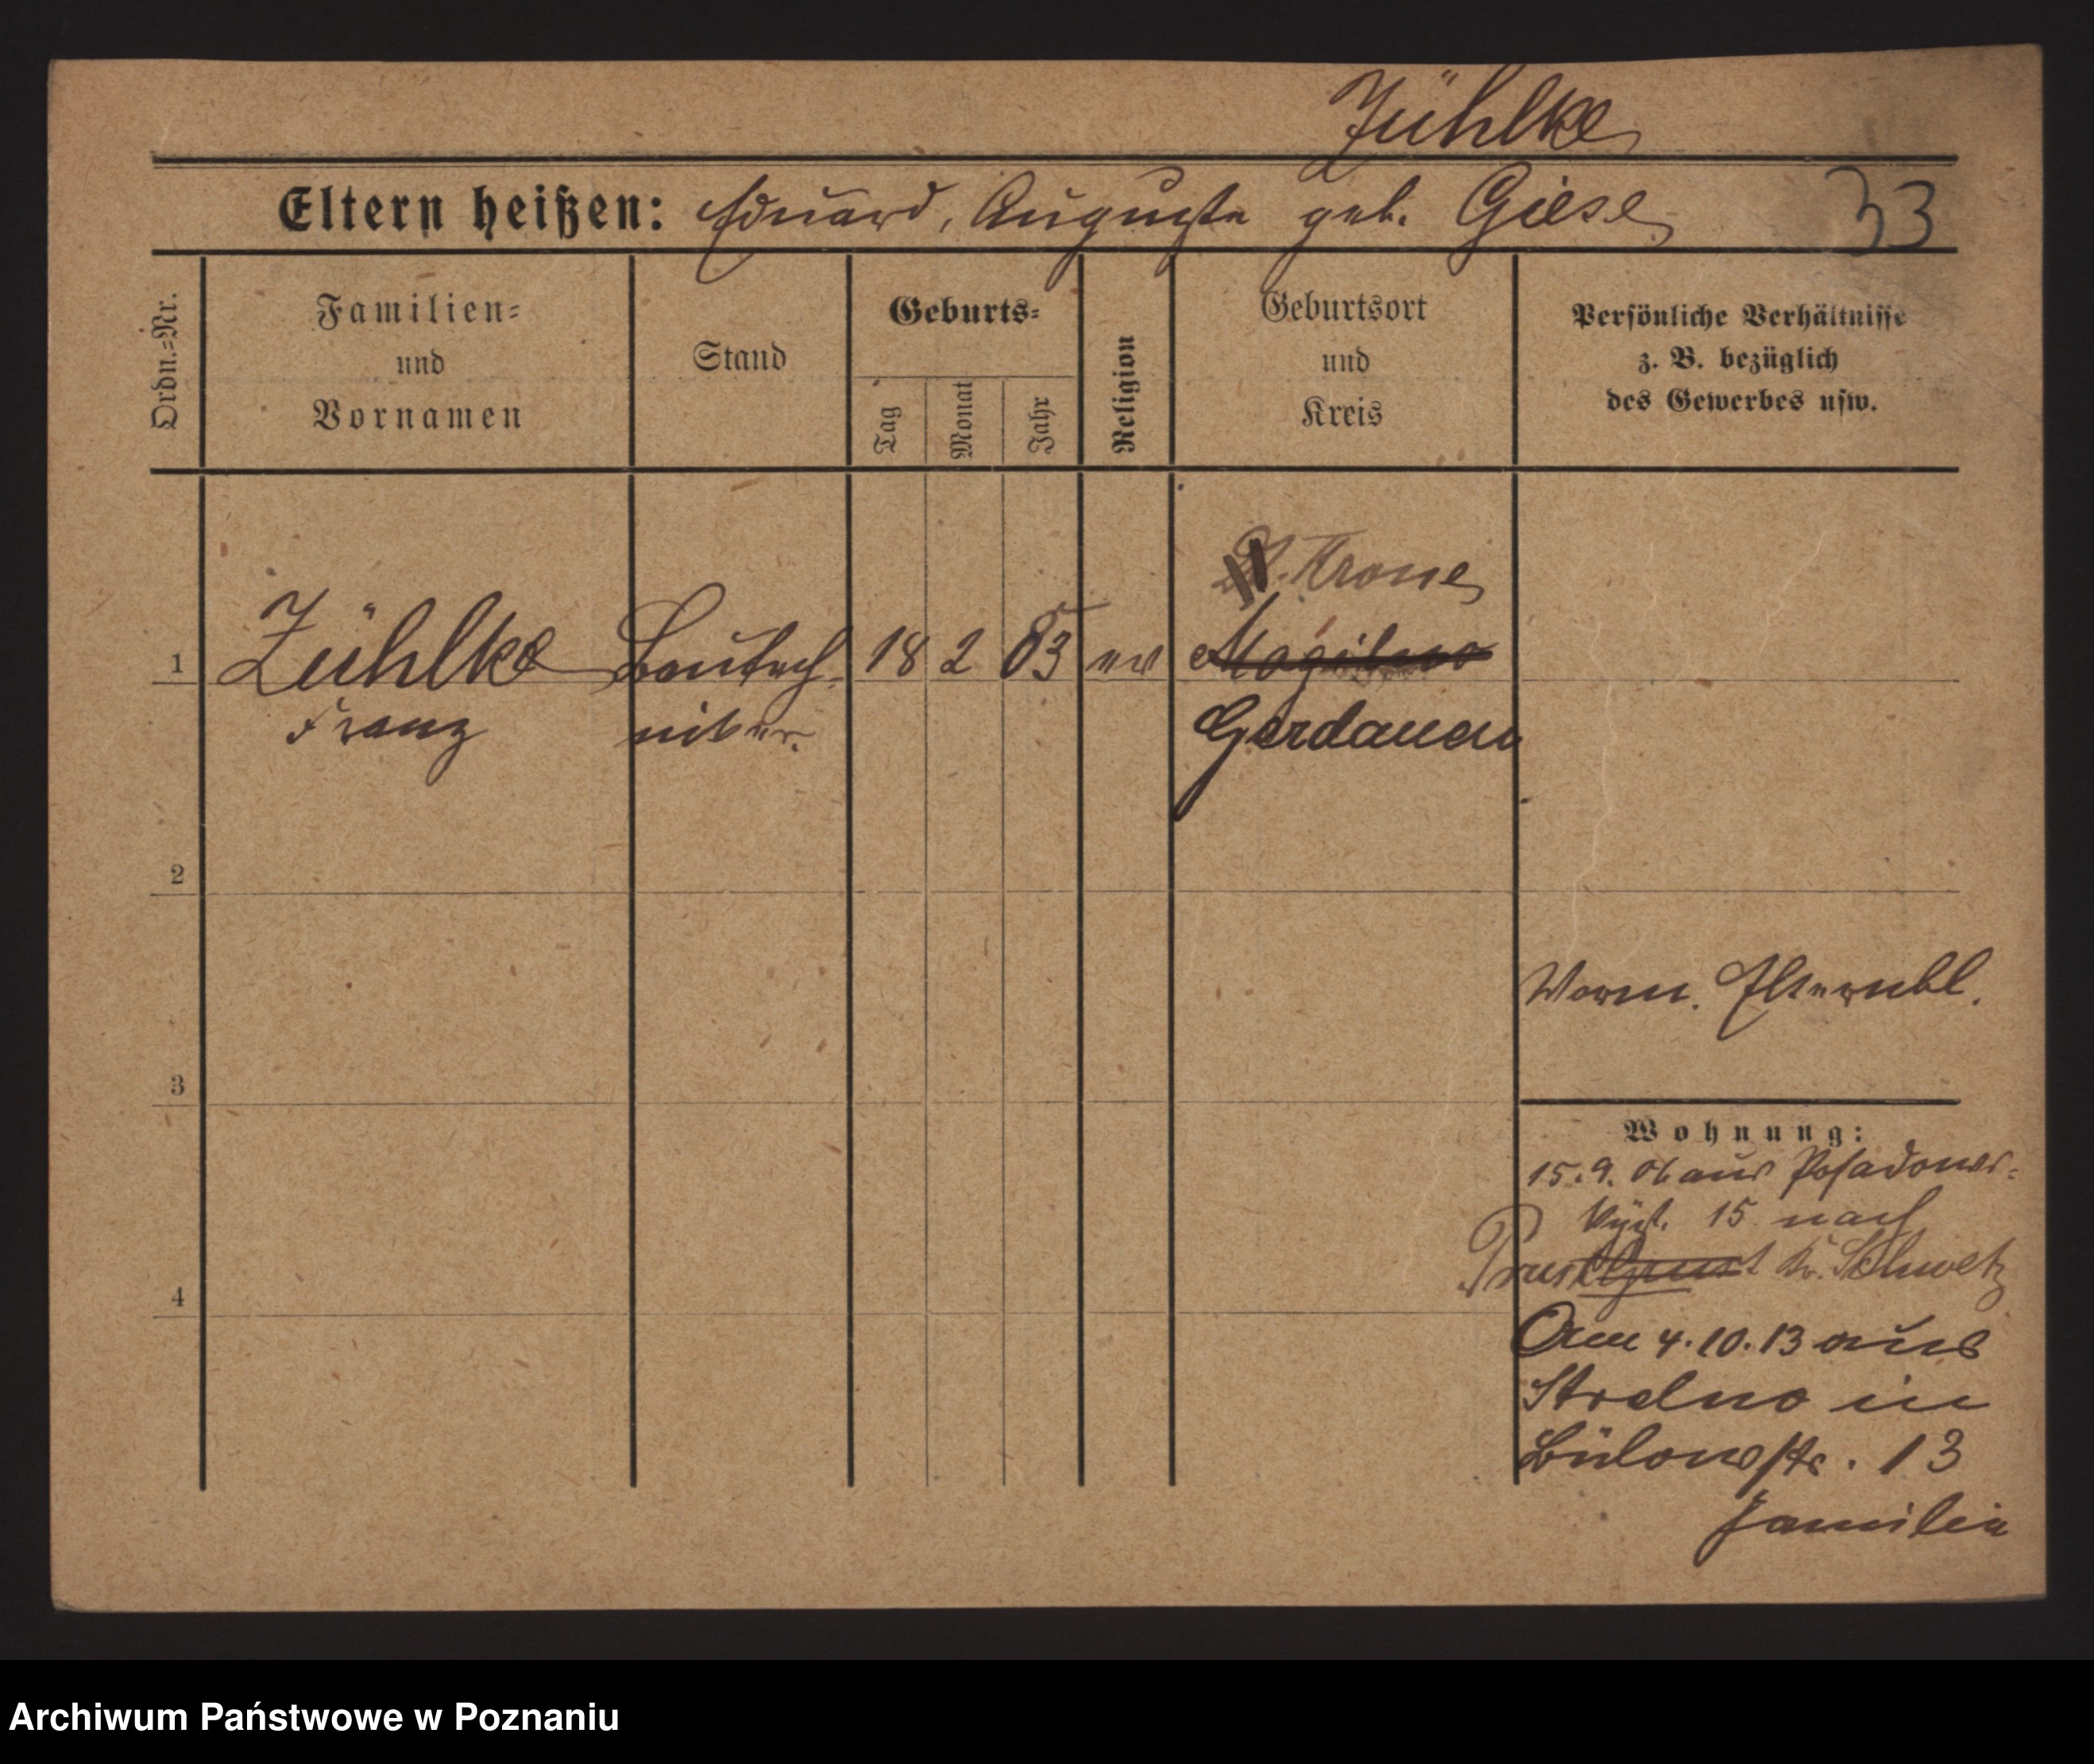 Zühlke
Eltern heißen: Eduard, Auguste geb. Giese
33
Ordn.=Nr.
Familien=
und
Vornamen
Stand
Geburts=
Tag
Monat
Jahr
Religion
Geburtsort
und
Kreis
Persönliche Verhältnisse
z. B. bezüglich
des Gewerbes usw.
Krone
1 Zühlke Bautech- 18 2 83 ev Mogilno
Franz niker. Gerdauen
2
Verm. Elternbl.
3
Wohnung:
15.9. 06 aus Posadower-
15 nach
Prust Kr. Schwetz
4
Am 4.10.13 aus
Strelno in
Bülowstr. 13
Familie
Archiwum Państwowe w Poznaniu